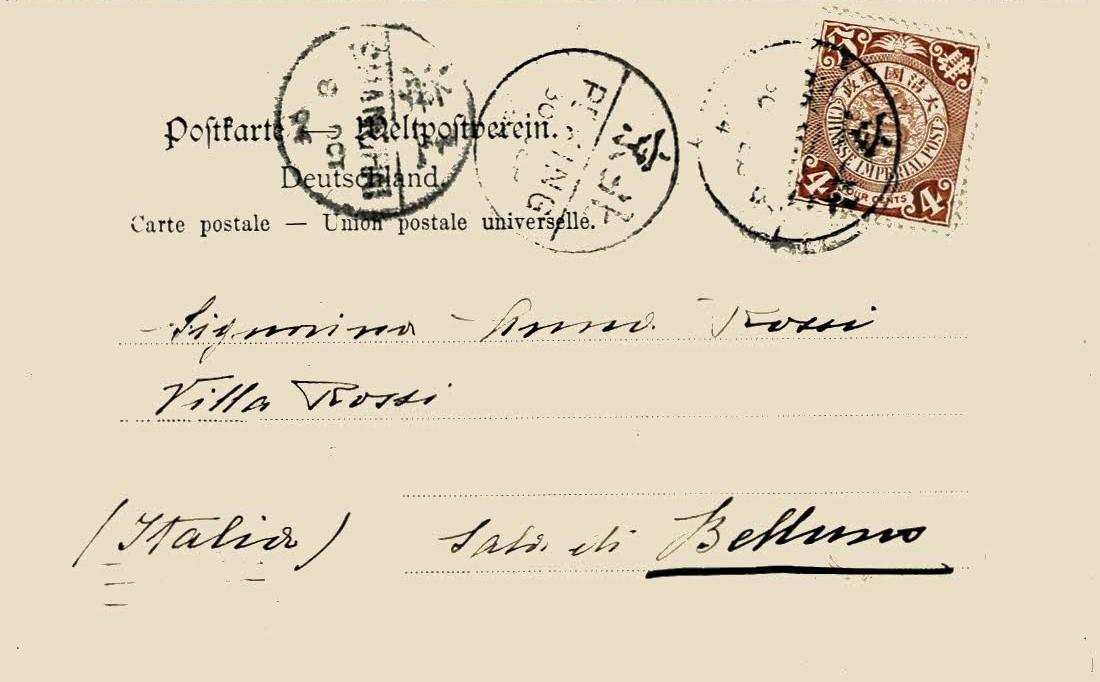 Postkarte — Weltpostverein.
Deutschland.
Carte postale — Union postale universelle.
PEKING
北京
SHANGHAI
8 OCT
大清國郵政
CHINESE IMPERIAL POST
4 FOUR CENTS 4
Signorina Anna Rossi
Villa Rossi
(Italia) Sala di Belluno